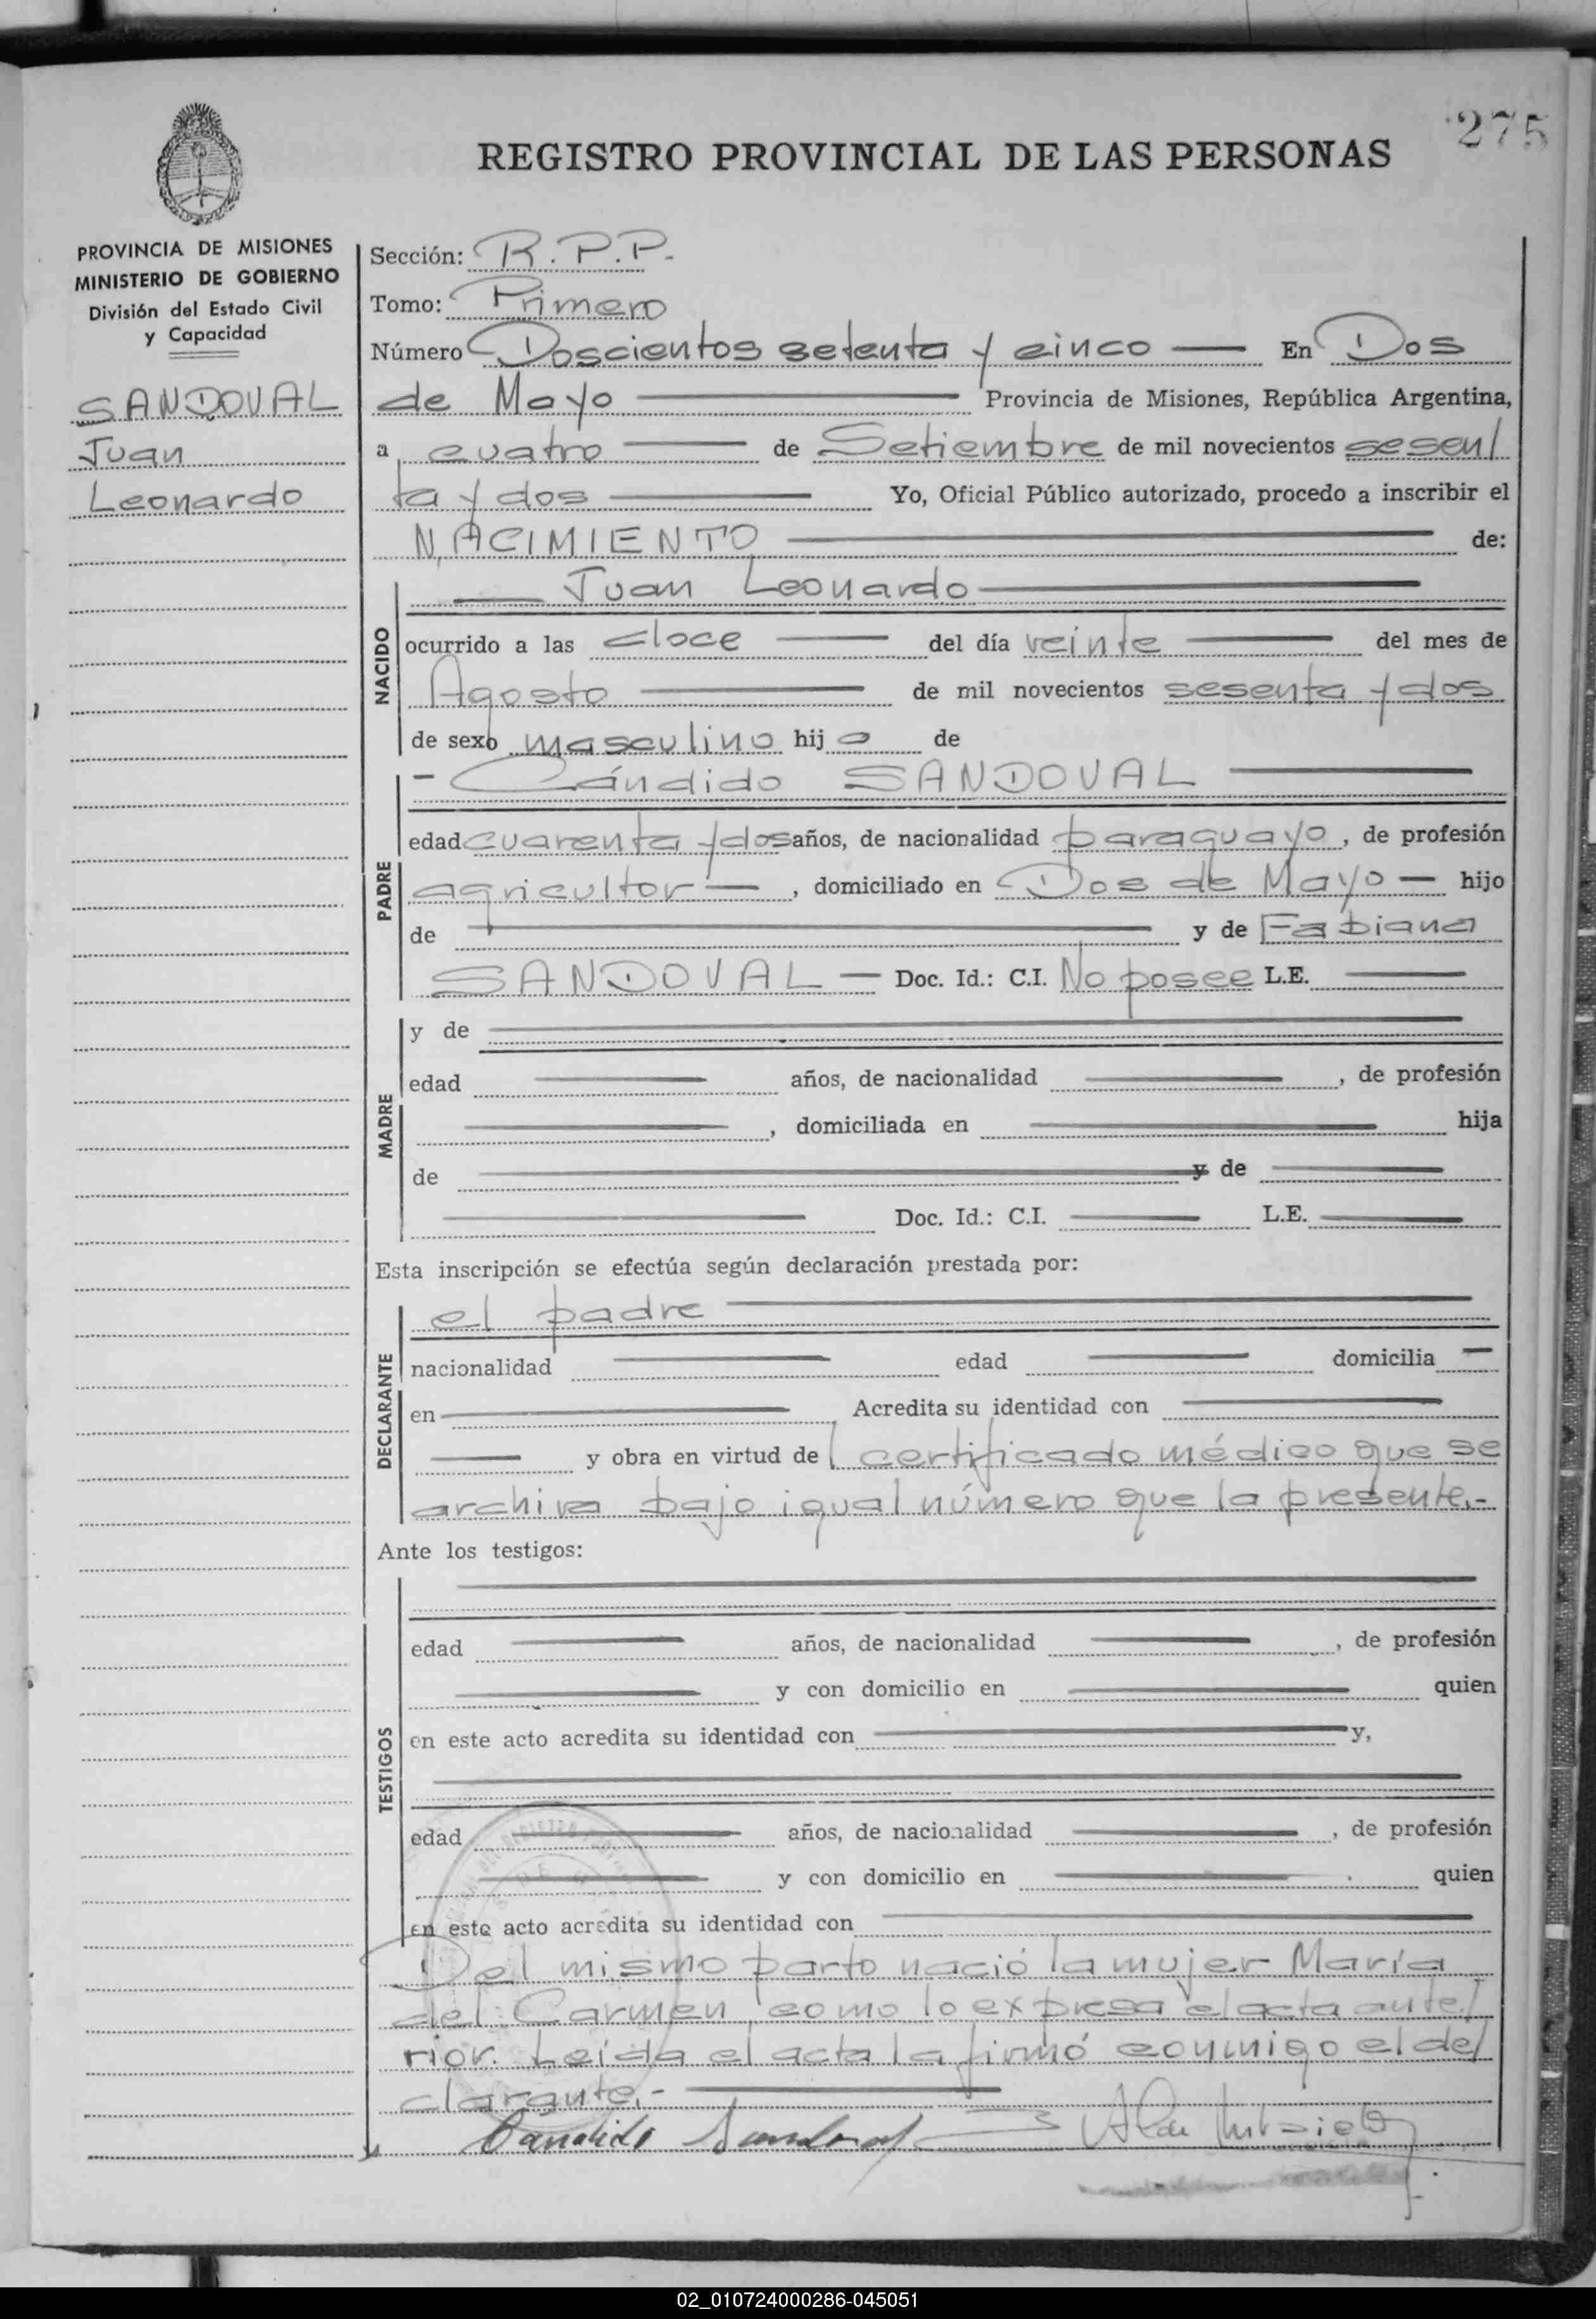 275
REGISTRO PROVINCIAL DE LAS PERSONAS
PROVINCIA DE MISIONES
MINISTERIO DE GOBIERNO
División del Estado Civil
y Capacidad
SANDOVAL
Juan
Leonardo
Sección: R.P.P.
Tomo: Primero
Número Doscientos setenta y cinco — En Dos
de Mayo — Provincia de Misiones, República Argentina,
a cuatro — de Setiembre de mil novecientos sesen/
ta y dos — Yo, Oficial Público autorizado, procedo a inscribir el
NACIMIENTO — de:
NACIDO
— Juan Leonardo —
ocurrido a las doce — del día veinte — del mes de
Agosto — de mil novecientos sesenta y dos
de sexo masculino hijo de
PADRE
- Cándido SANDOVAL —
edad cuarenta y dos años, de nacionalidad paraguayo, de profesión
agricultor —, domiciliado en Dos de Mayo — hijo
de — y de Fabiana
SANDOVAL — Doc. Id.: C.I. No posee L.E. —
MADRE
y de —
edad — años, de nacionalidad —, de profesión
—, domiciliada en — hija
de — y de —
— Doc. Id.: C.I. — L.E. —
Esta inscripción se efectúa según declaración prestada por:
DECLARANTE
el padre —
nacionalidad — edad — domicilia —
en — Acredita su identidad con —
— y obra en virtud de certificado médico que se
archiva bajo igual número que la presente.-
Ante los testigos:
TESTIGOS
edad — años, de nacionalidad —, de profesión
— y con domicilio en — quien
en este acto acredita su identidad con — y,
edad — años, de nacionalidad —, de profesión
— y con domicilio en — quien
en este acto acredita su identidad con —
Del mismo parto nació la mujer María
del Carmen, como lo expresa el acta ante/
rior. Leída el acta la firmó conmigo el de/
clarante.- —
Cándido Sandoval
02_010724000286-045051